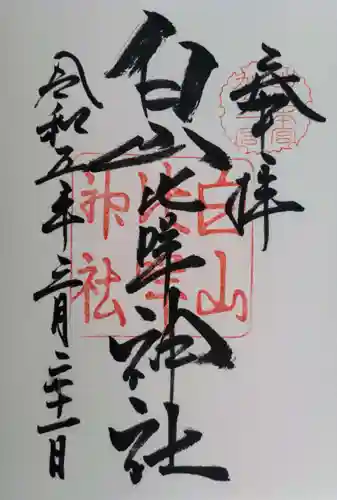 奉拝
白山比咩神社
令和五年三月二十一日
白山
比咩
神社